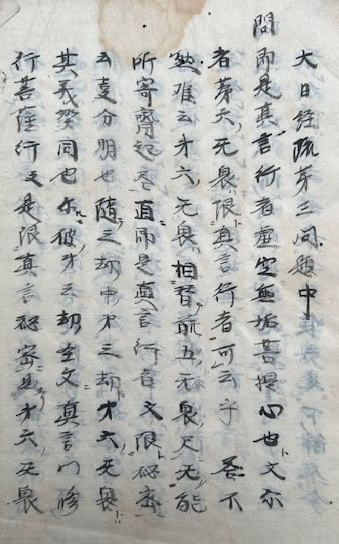 大日経疏第三問題中
問即是真言行者虚空無垢菩提心也文尓
者第六无畏限真言行者可云乎 答不
然難云第六无畏相替前五无畏尺无能
所寄齊起尽直即是真言行者文限秘密
云事分明也随三劫中第三劫第六无畏
其義焭同也尓彼第三劫至文真言門修
行菩薩行文是限真言秘密見第六无畏